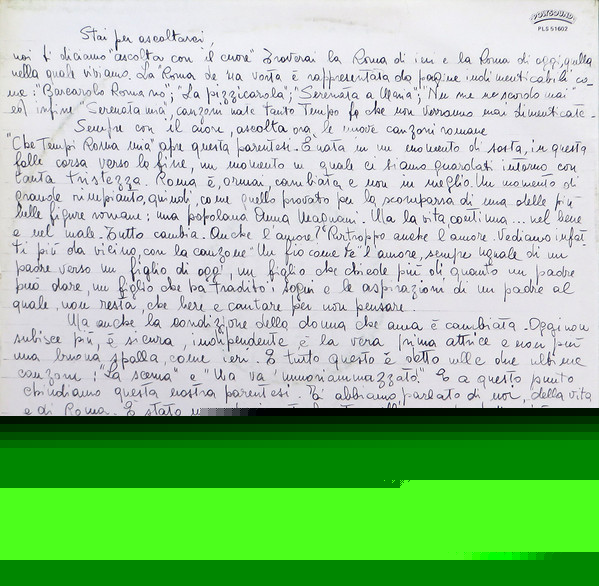 POWSOUND
PLS 51602
Stai per ascoltarci,
noi ti diciamo "ascolta con il cuore" Troverai la Roma di ieri e la Roma di oggi, quella
nella quale viviamo. La "Roma de na vorta è rappresentata da pagine indimenticabili co_
me: "Barcarolo Romano"; "La pizzicarola"; "Serenata a Maria"; "Nun me ne scordo mai"
ed infine "Serenata mia", canzoni nate tanto tempo fa che non verranno mai dimenticate.
Sempre con il cuore, ascolta ora, le nuove canzoni romane
"Che Tempi Roma mia" apre questa parentesi. È nata in un momento di sosta, in questa
folle corsa verso la fine, un momento in quale ci siamo guardati intorno con
tanta tristezza. Roma è, ormai, cambiata e non in meglio. Un momento di
grande rimpianto, quindi, come quello provato per la scomparsa di una delle più
belle figure romane: una popolana Anna Magnani. Ma la vita, continua... nel bene
e nel male. Tutto cambia. Anche l'amore? Purtroppo anche l'amore. Vediamo infat
ti più da vicino, con la canzone "Un fio come te" l'amore, sempre uguale di un
padre verso un figlio di oggi, un figlio che chiede più di quanto un padre
può dare, un figlio che ha tradito i sogni e le aspirazioni di un padre al
quale, non resta, che bere e cantare per non pensare.
Ma anche la condizione della donna che ama è cambiata. Oggi non
subisce più, è sicura, indipendente è la vera prima attrice e non più
una buona spalla, come ieri. E tutto questo è detto nelle due ultime
canzoni: "La scema" e "Ma va' immoriammazzato". E a questo punto
chiudiamo questa nostra parentesi. E abbiamo parlato di noi, della vita
e di Roma. È stato